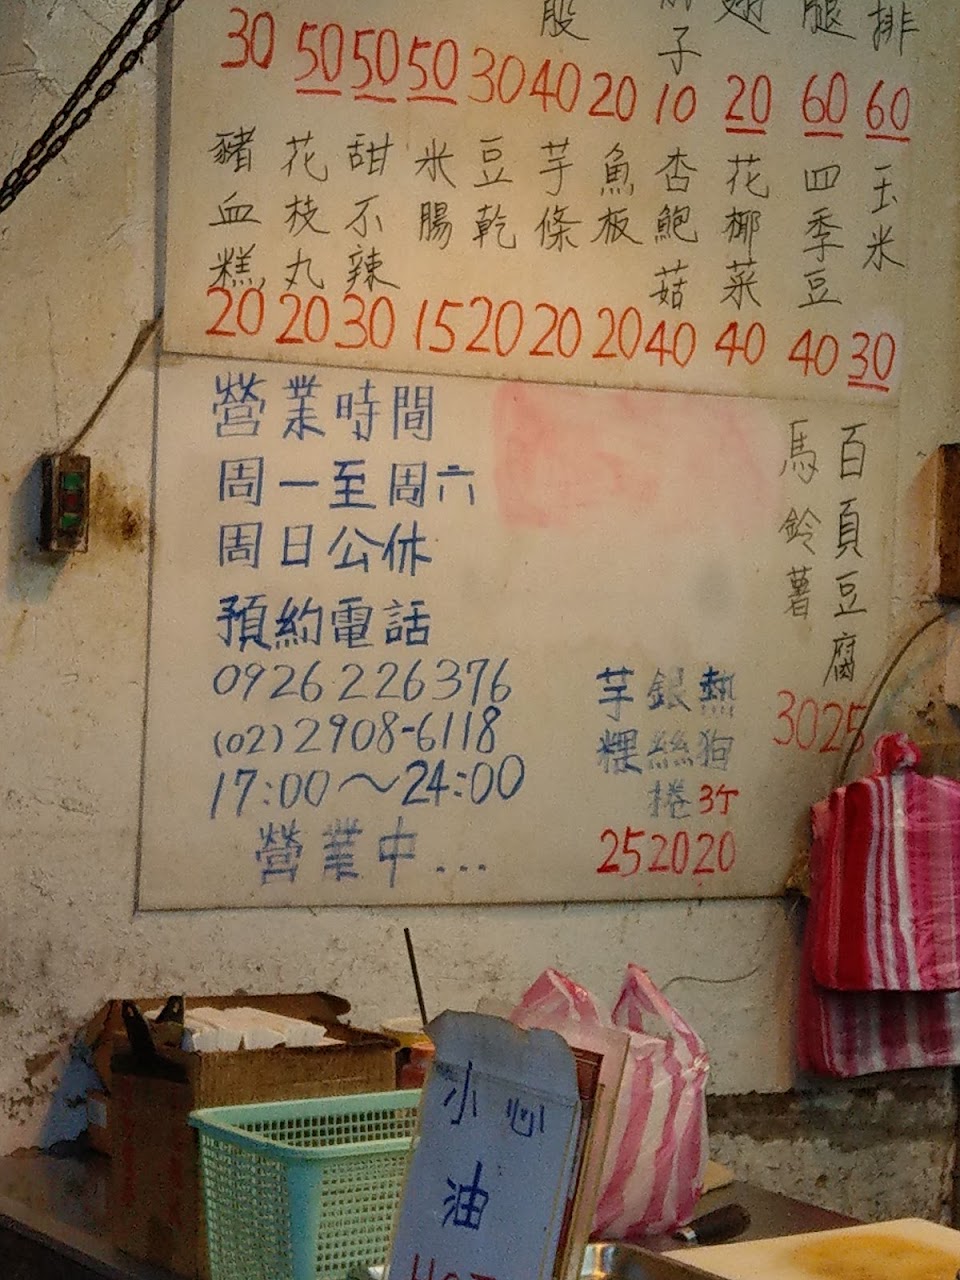 30 50 50 50 30 40 20 10 20 60 60
豬血糕 20
花枝丸 20
甜不辣 30
米腸 15
豆乾 20
芋條 20
魚板 20
杏鮑菇 40
花椰菜 40
四季豆 40
玉米 30
營業時間
周一至周六
周日公休
預約電話
0926226376
(02)2908-6118
17:00~24:00
營業中...
芋粿 25
銀絲捲 20
熱狗 3个 20
馬鈴薯 30
百頁豆腐 25
小心
油